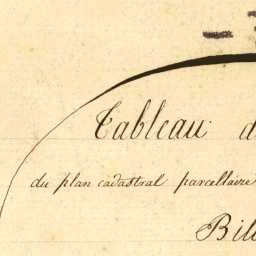 Tableau d
du plan cadastral parcellaire
Bil